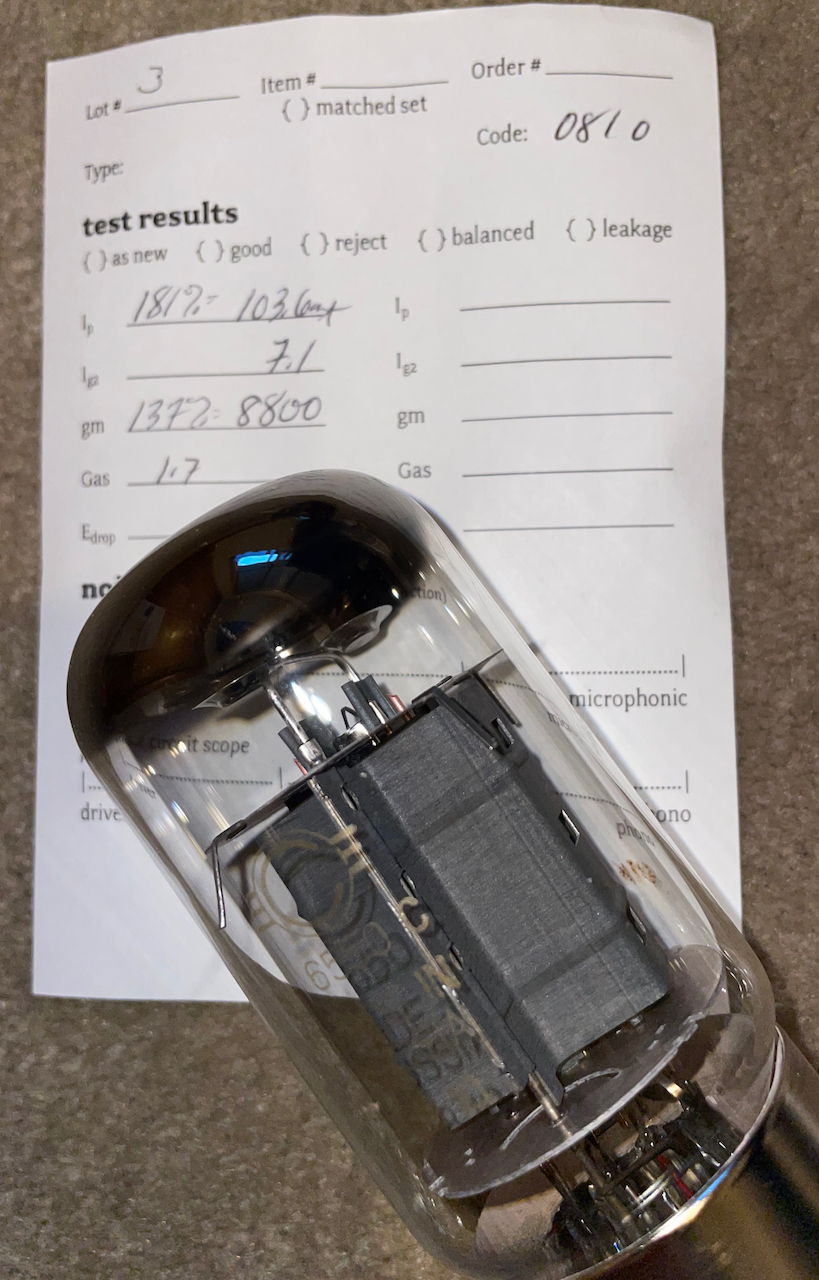 Lot # 3 Item # Order #
{ } matched set
Code: 0810
Type:
test results
{ } as new { } good { } reject { } balanced { } leakage
Ip 181%= 103.6 Ip
Ig2 7.1 Ig2
gm 137%= 8800 gm
Gas 1.7 Gas
Edrop
ction)
microphonic
circuit scope
drive
phono